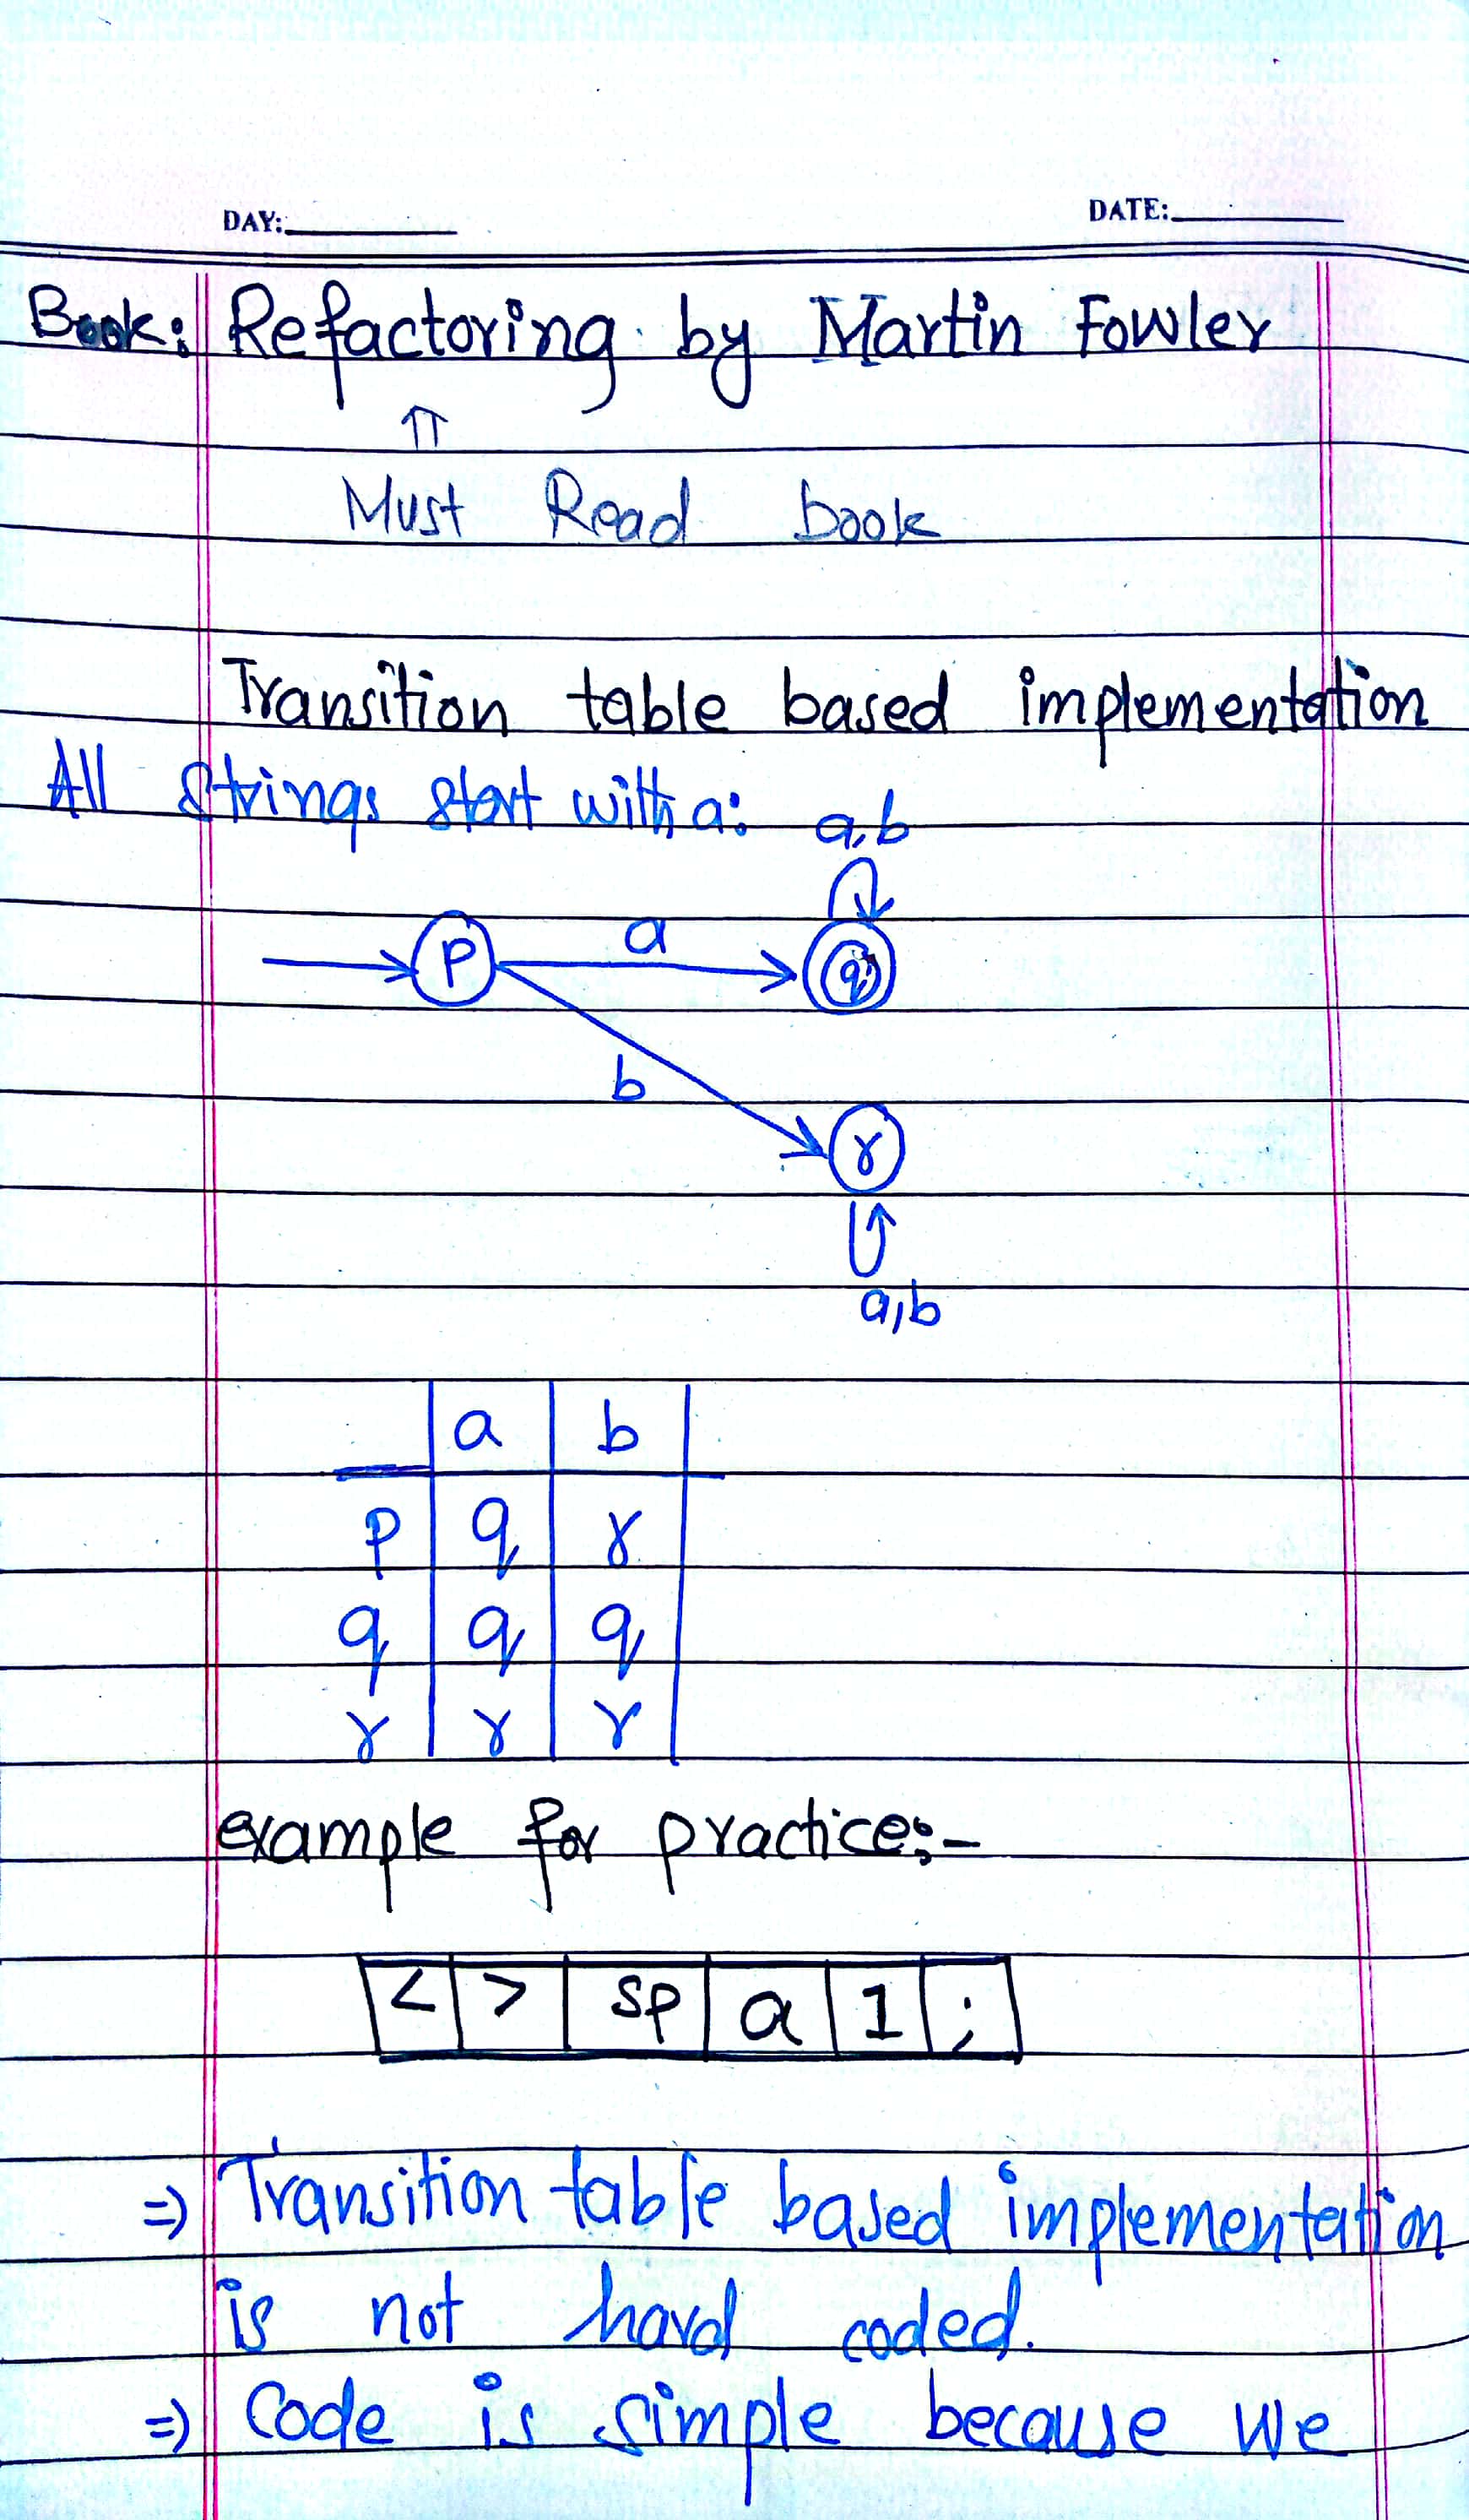 DAY: DATE:
Book: Refactoring by Martin Fowler
⇑
Must Read book
Transition table based implementation
All strings start with a: a,b
p a q
b
r
a,b
a b
p q r
q q q
r r r
example for practice:-
< > sp a 1 ;
⇒ Transition table based implementation
is not hard coded.
⇒ Code is simple because we